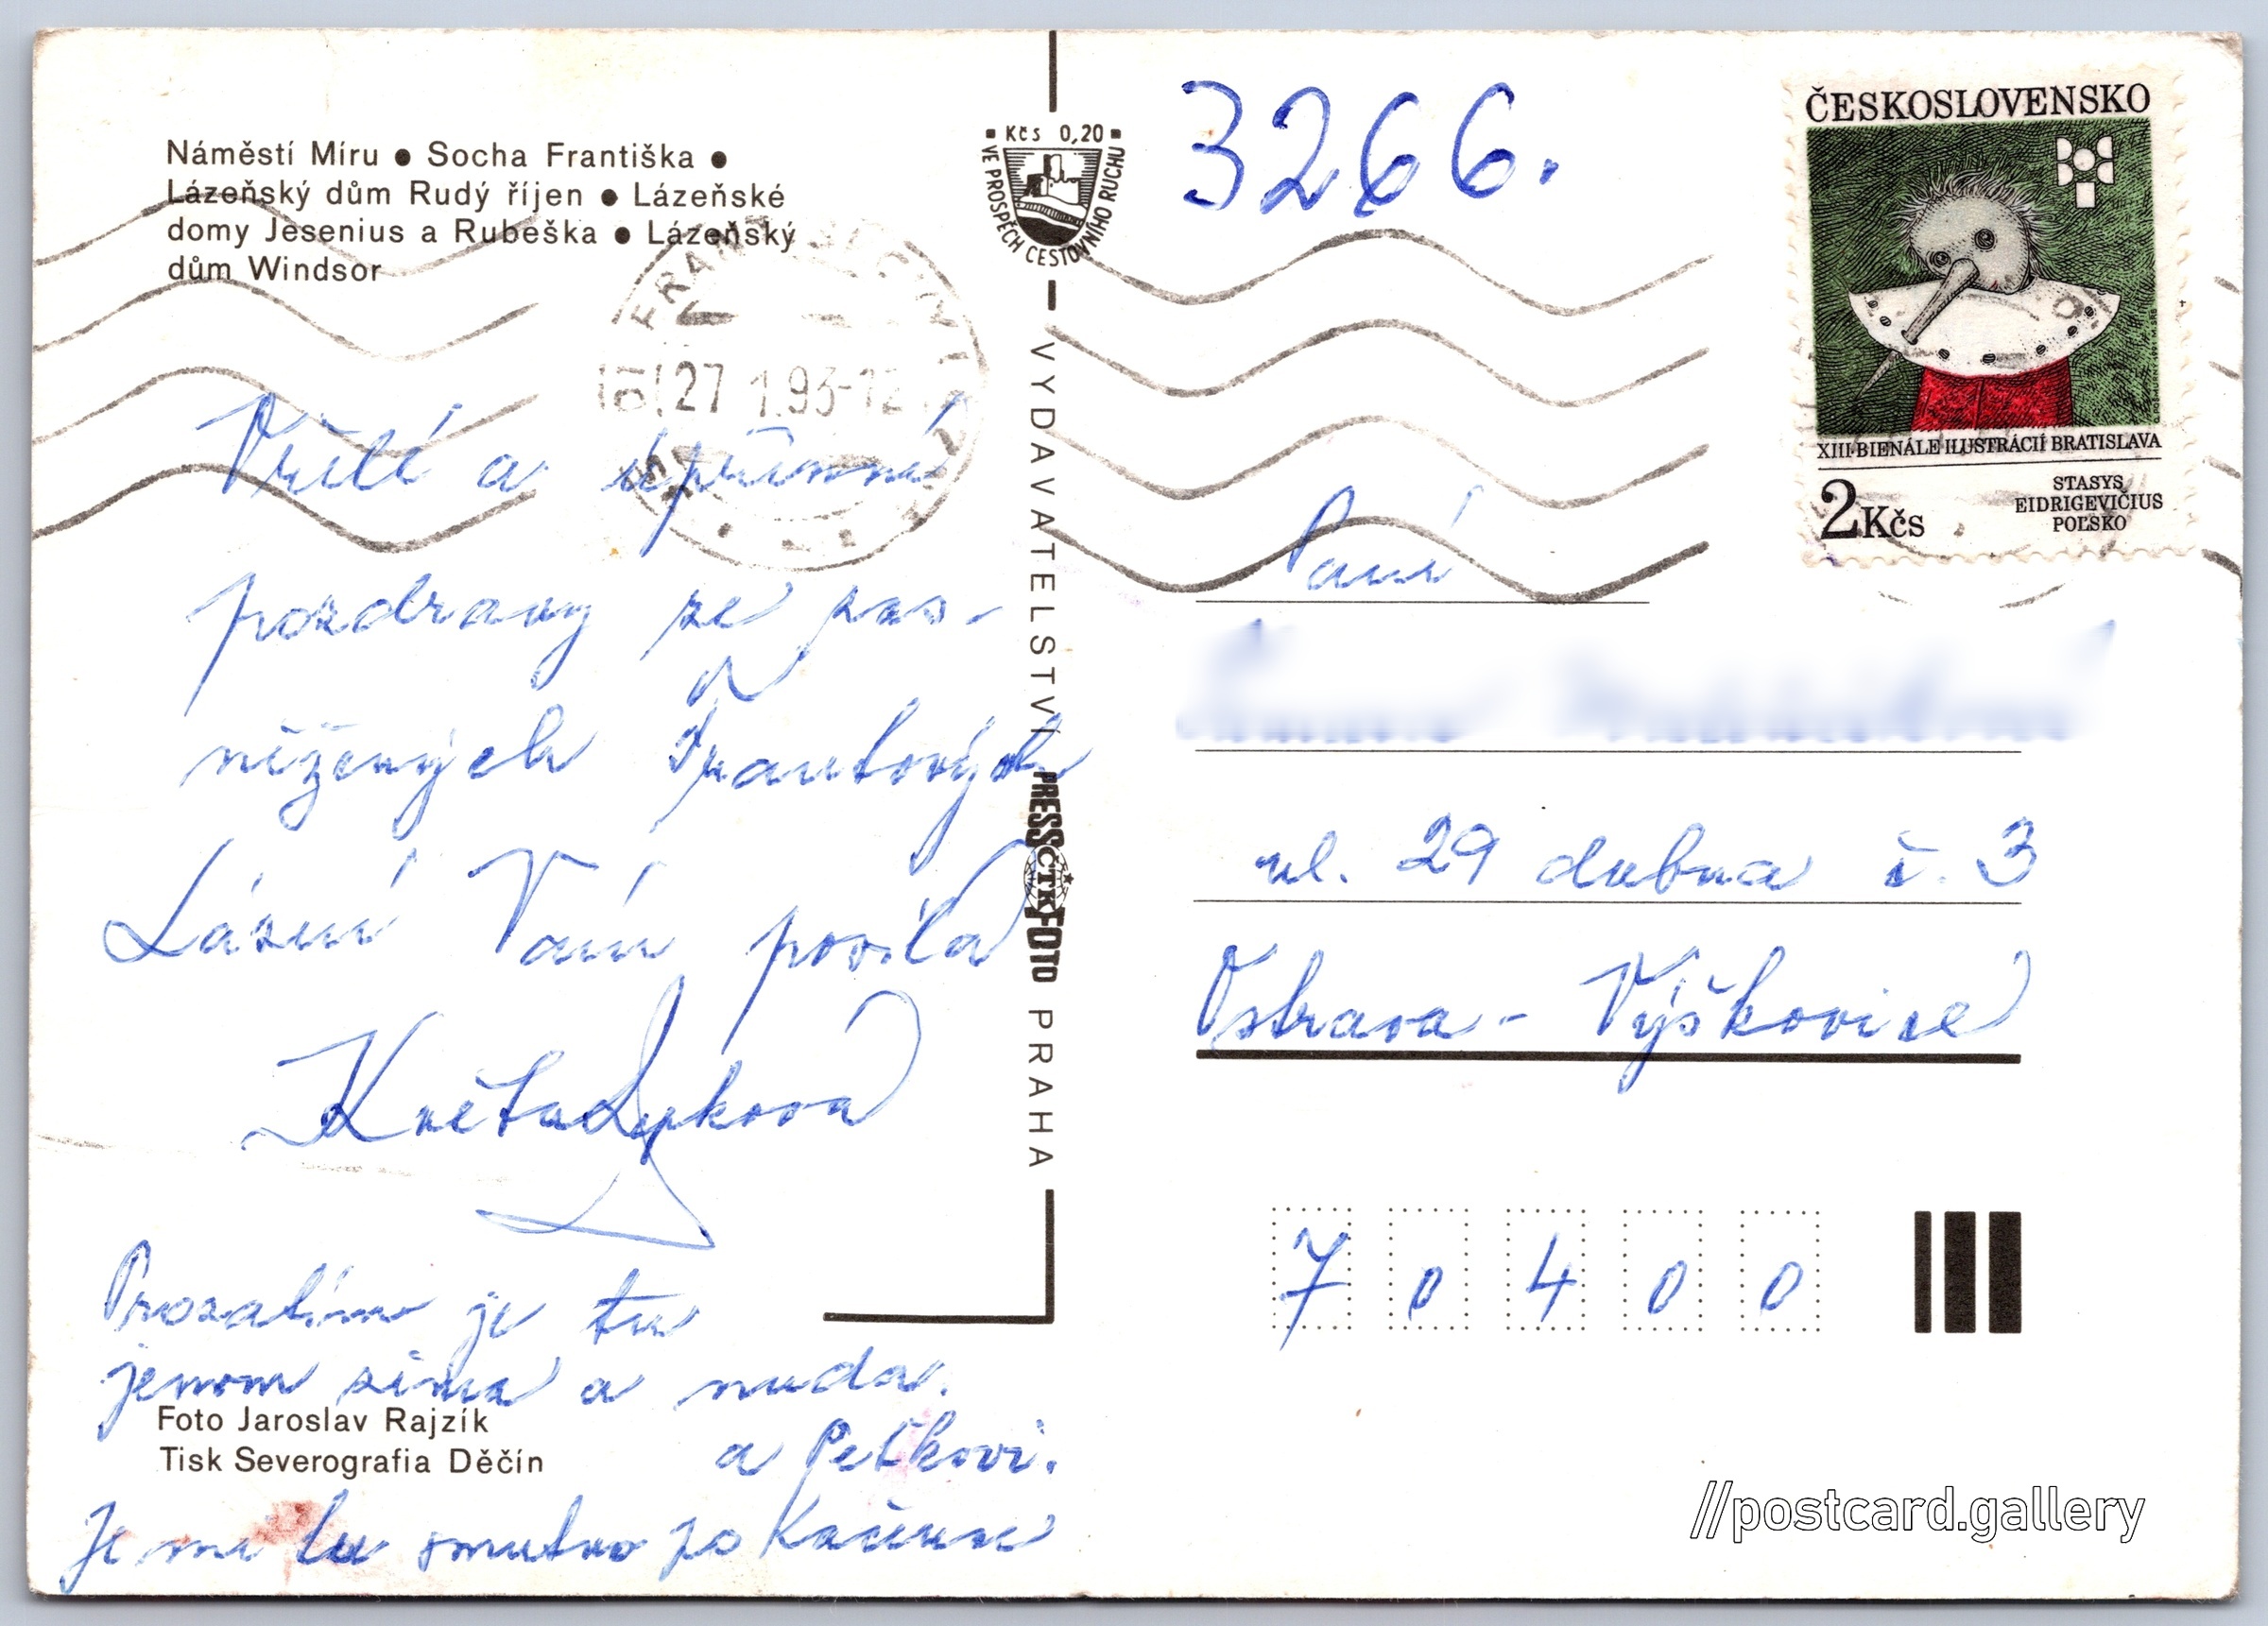 Náměstí Míru ● Socha Františka ●
Lázeňský dům Rudý říjen ● Lázeňské
domy Jesenius a Rubeška ● Lázeňský
dům Windsor
Vřelé a upřímné
pozdravy ze zas-
něžených Františkových
Lázní Vám posílá
Květa Lyková
Prozatím je tu
jenom zima a nuda.
Je mi tu smutno po Kačence
a Peťkovi.
Foto Jaroslav Rajzík
Tisk Severografia Děčín
▪ Kčs 0,20 ▪
VE PROSPĚCH CESTOVNÍHO RUCHU
VYDAVATELSTVÍ PRESSFOTO PRAHA
ČTK
27 1.93-12
3266.
ČESKOSLOVENSKO
XIII. BIENÁLE ILUSTRÁCIÍ BRATISLAVA
2Kčs
STASYS
EIDRIGEVIČIUS
POĽSKO
Paní
ul. 29 dubna č. 3
Ostrava - Výškovice
7 0 4 0 0
//postcard.gallery